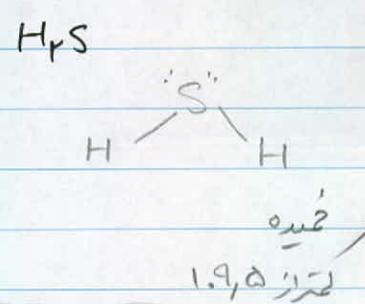 H۲S
S
H H
خمیده
کمتر از ۱۰۹٫۵